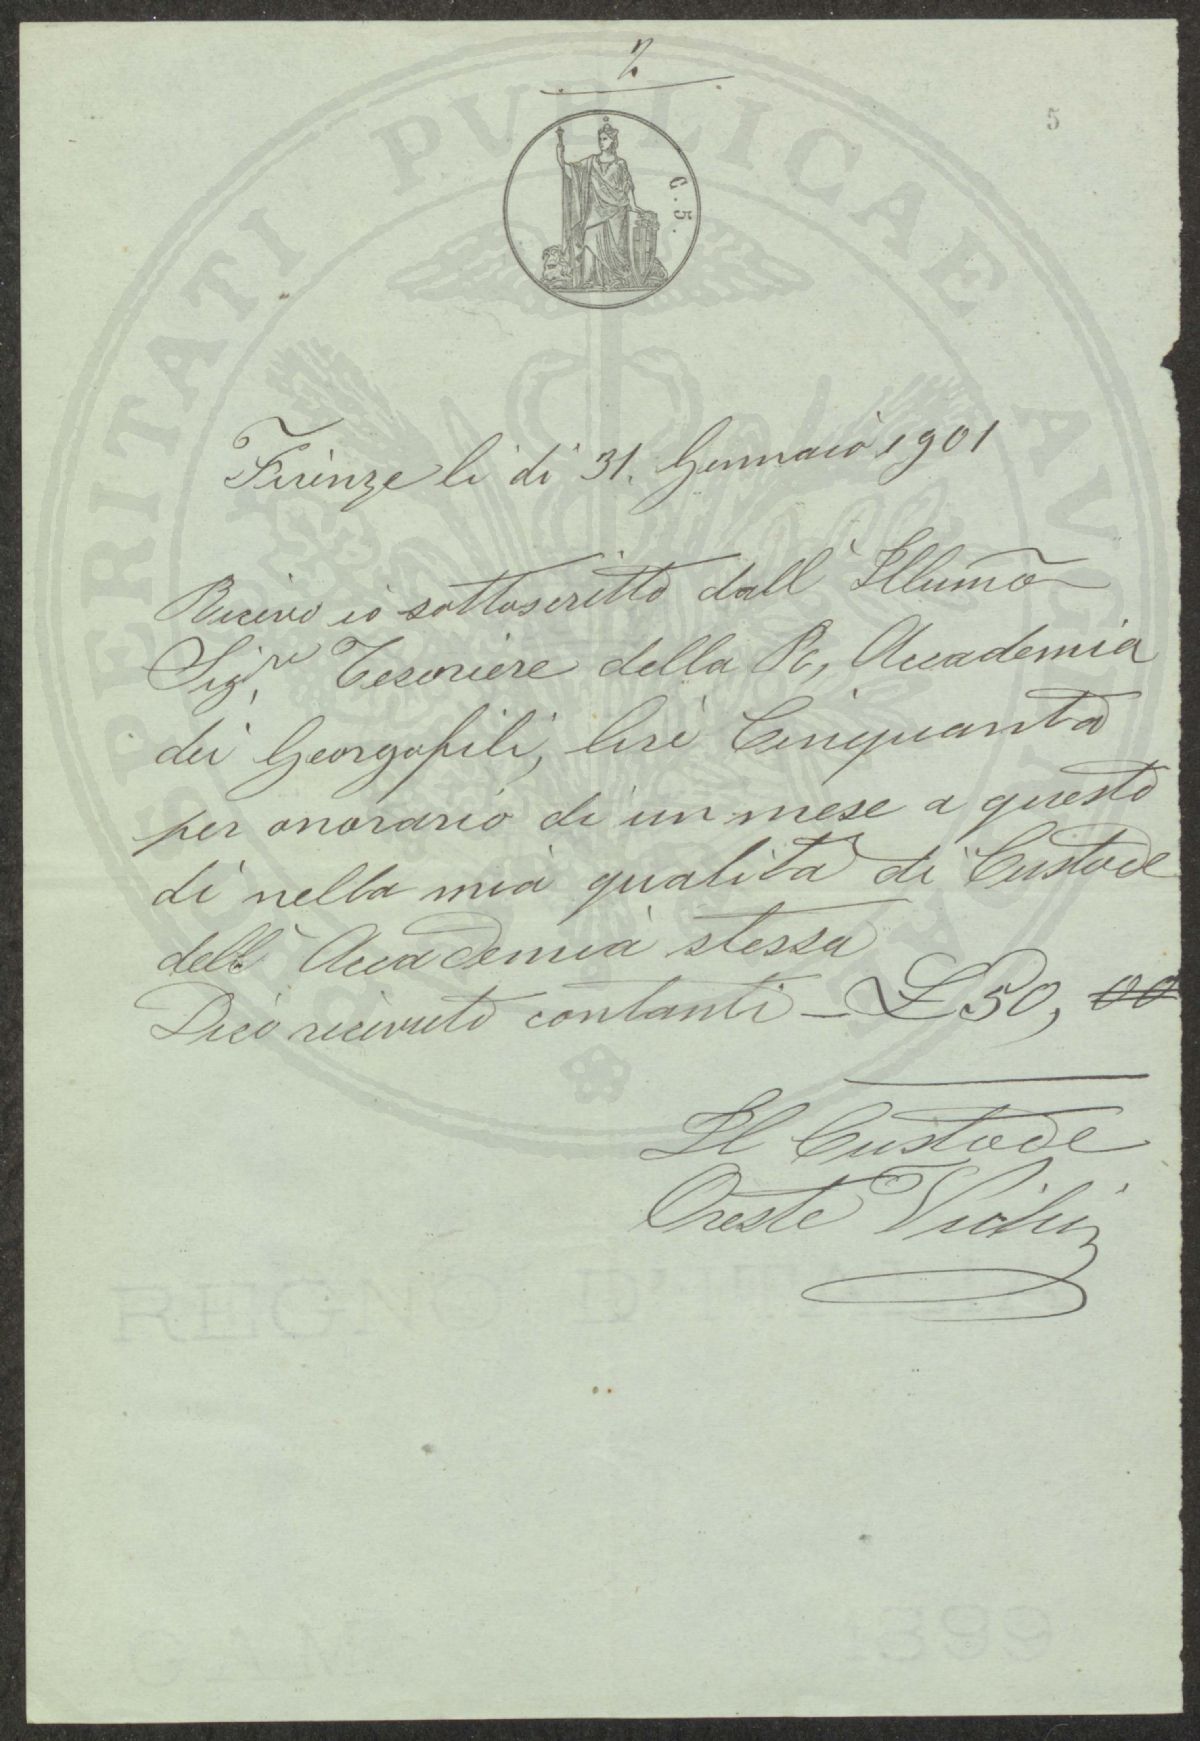 2
5
C. 5.
PROSPERITATI PUBLICAE AUGENDAE
Firenze li di 31. Gennaio 1901
Ricevo io sottoscritto dall' Illumo
Sigre, Tesoriere della R, Accademia
dei Georgofili, lire Cinquanta
per onorario di un mese a questo
dì nella mia qualità di Custode
dell' Accademia stessa
Dico ricevuto contanti — £ 50, 00
Il Custode
Oreste
REGNO D'ITALIA
1899